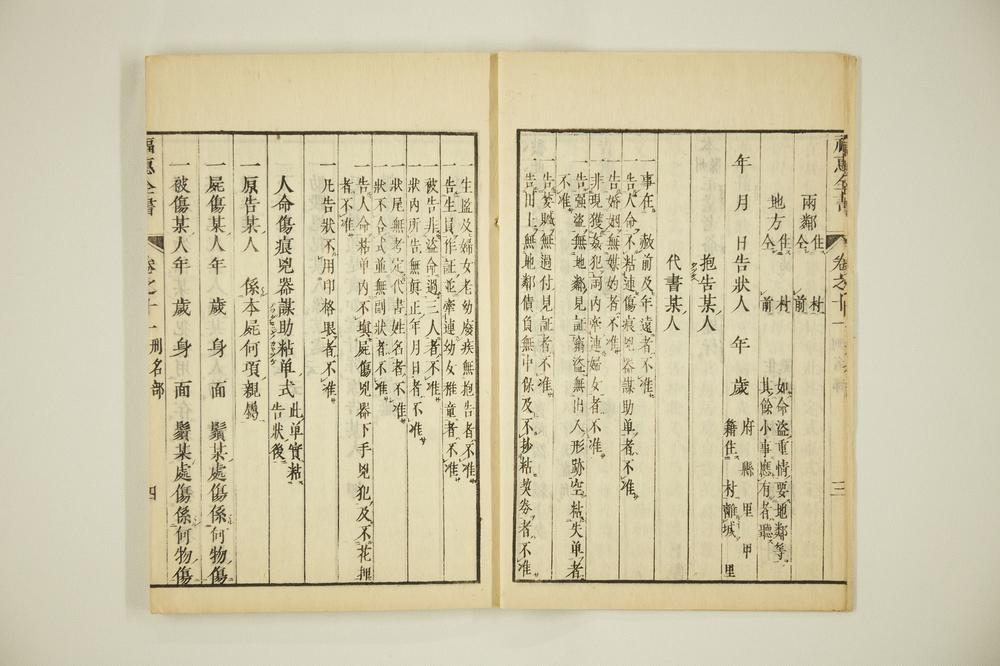 福惠全書 卷之十一 刑名部 三
兩鄰 住 村 仝 前
地方 住 村 仝 前
如命盜重情要地鄰等
其餘小事應有者聽
年 月 日告狀人 年 歲 府 縣 里 甲
籍住 村離城 里
抱告某人
代書某人
一事在 赦前及年遠者不准
一告人命不粘連傷痕兇器謀助单者不准
一告婚姻無媒妁者不准
一非現獲姦犯詞内牽連婦女者不准
一告强盜無地鄰見証竊盜無出入形跡空粘失单者
不准
一告婪贓無過付見証者不准
一告田土無地鄰債負無中保及不抄粘契劵者不准
一生監及婦女老幼廢疾無抱告者不准
一告生員作証並牽連幼女稚童者不准
一被告非盜命過三人者不准
一狀内所告無眞正年月日者不准
一狀尾無考定代書姓名者不准
一狀不合式並無副狀者不准
一告人命粘单内不塡屍傷兇器下手兇犯及不花押
者不准
一凡告狀不用印格眼者不准
人命傷痕兇器謀助粘单式 此单實粘
告狀後
一原告某人 係本屍何項親屬
一屍傷某人年 歲 身 面 鬚某處傷係何物傷
一被傷某人年 歲 身 面 鬚某處傷係何物傷
福惠全書 卷之十一 刑名部 四